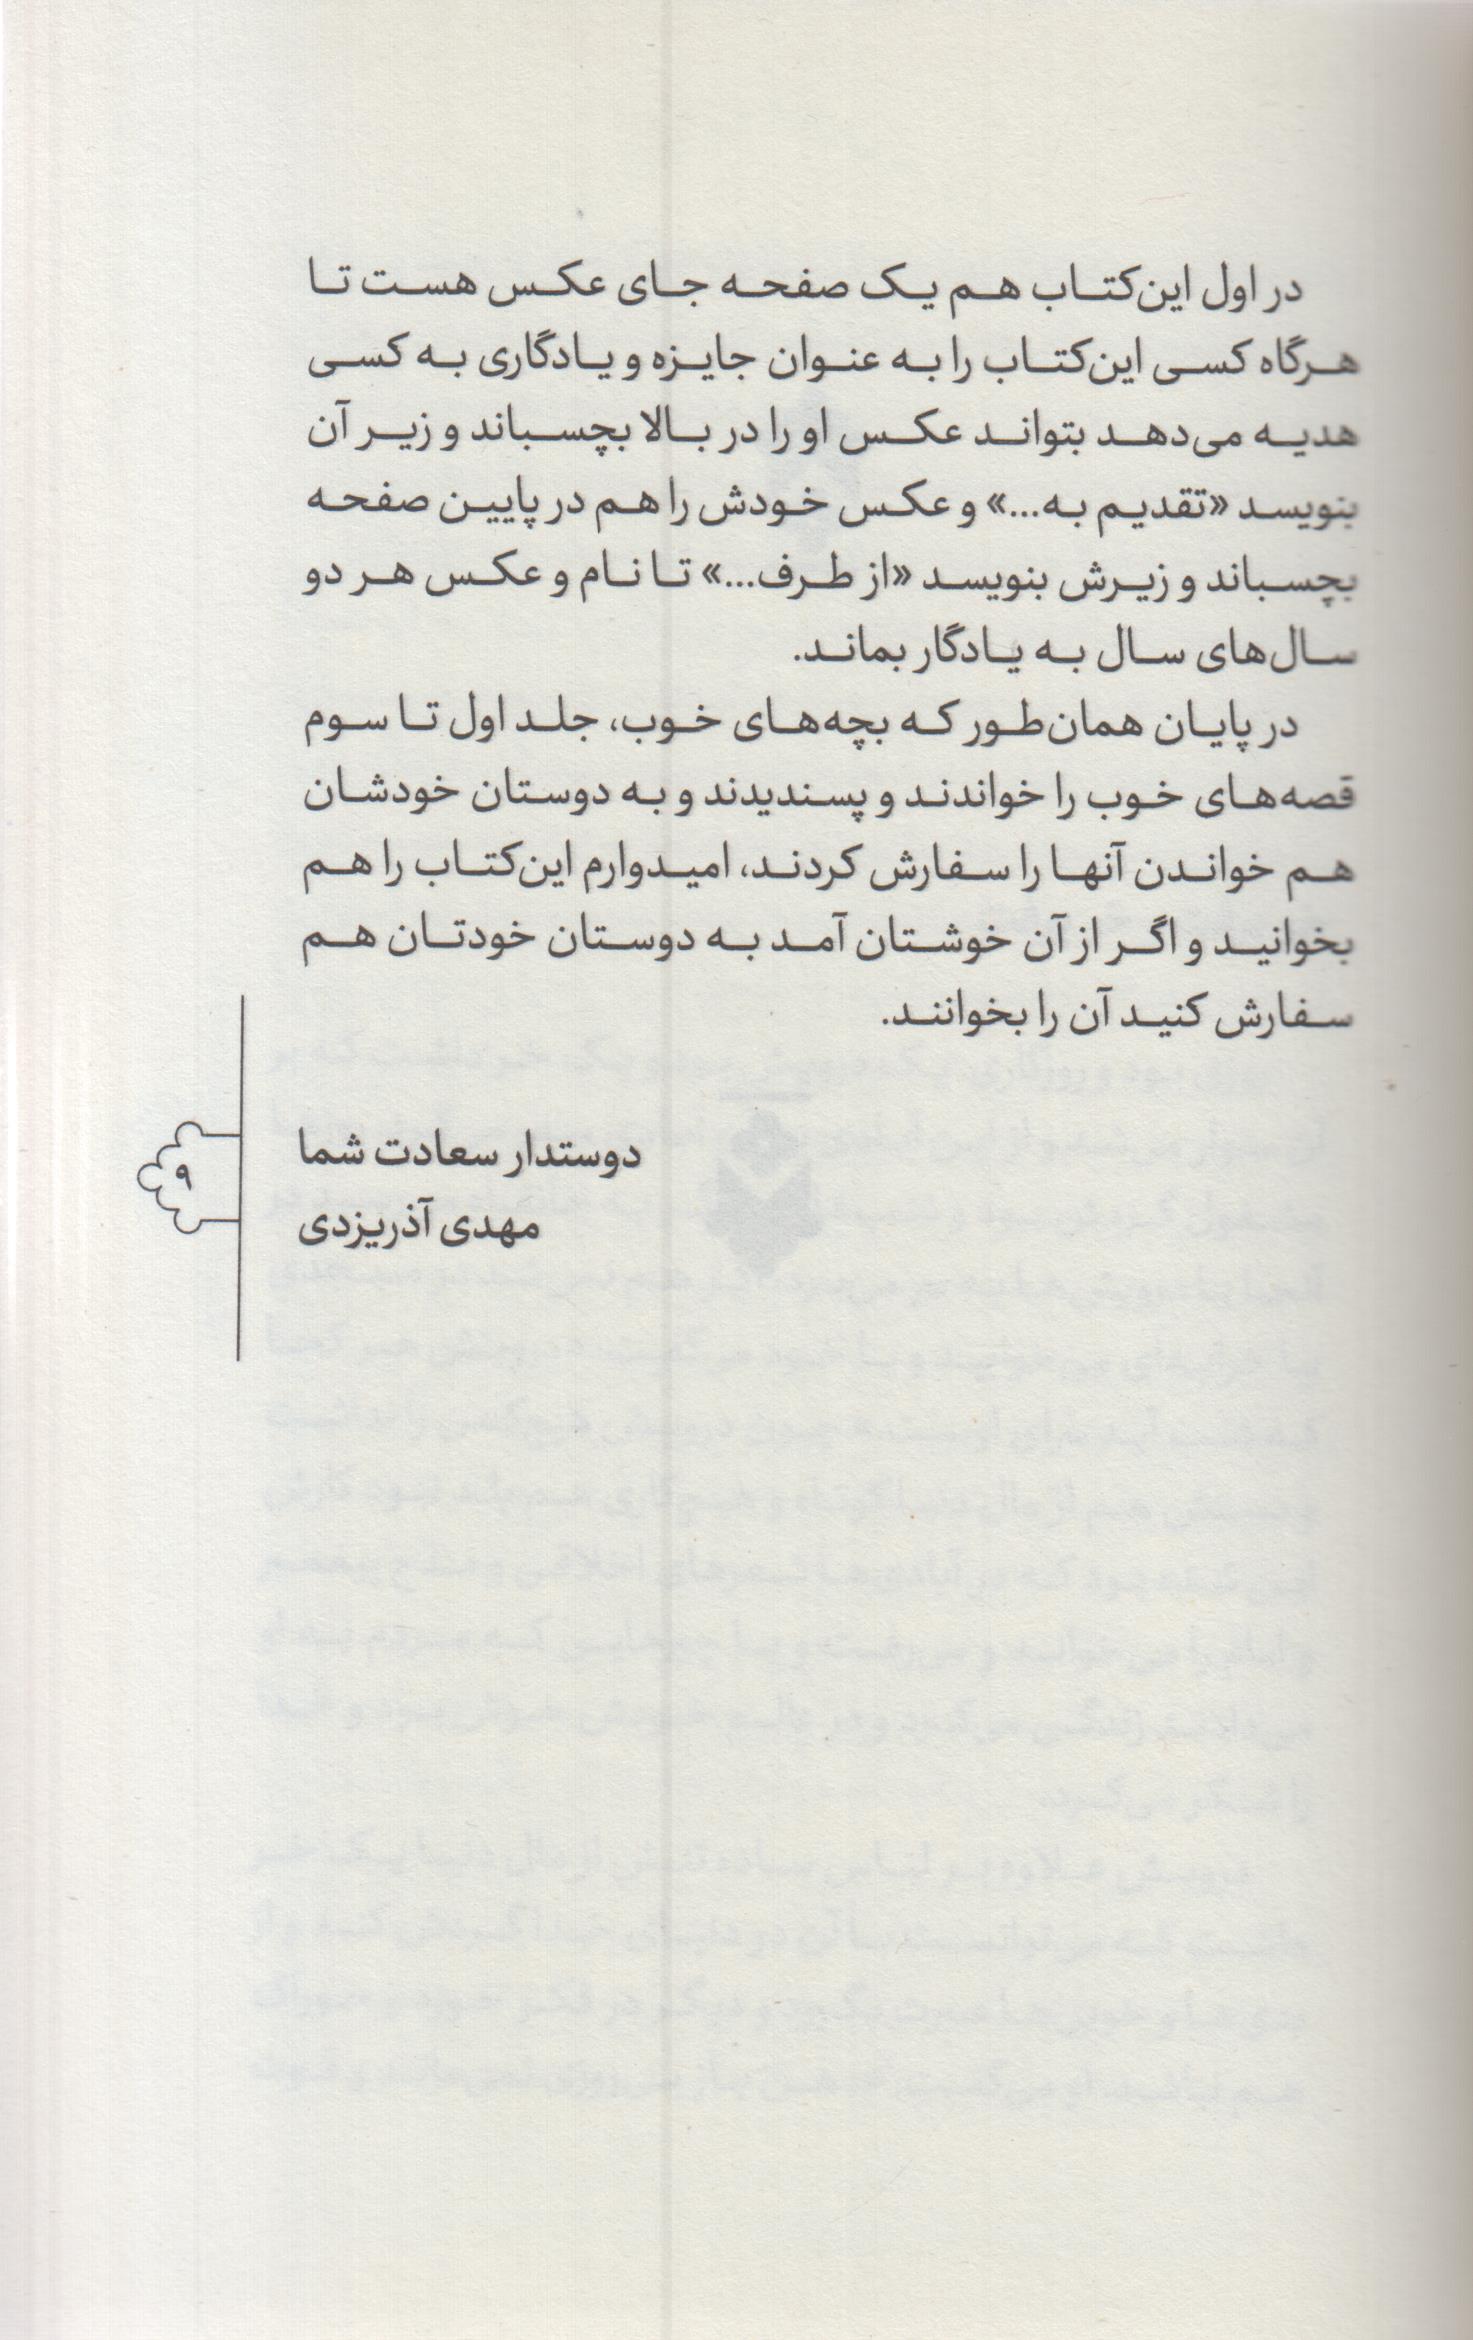 در اول این‌کتاب هم یک صفحه جای عکس هست تا
هرگاه کسی این‌کتاب را به عنوان جایزه و یادگاری به کسی
هدیه می‌دهد بتواند عکس او را در بالا بچسباند و زیر آن
بنویسد «تقدیم به...» و عکس خودش را هم در پایین صفحه
بچسباند و زیرش بنویسد «از طرف...» تا نام و عکس هر دو
سال‌های سال به یادگار بماند.
در پایان همان‌طور که بچه‌های خوب، جلد اول تا سوم
قصه‌های خوب را خواندند و پسندیدند و به دوستان خودشان
هم خواندن آنها را سفارش کردند، امیدوارم این‌کتاب را هم
بخوانید و اگر از آن خوشتان آمد به دوستان خودتان هم
سفارش کنید آن را بخوانند.
دوستدار سعادت شما
مهدی آذریزدی
۹